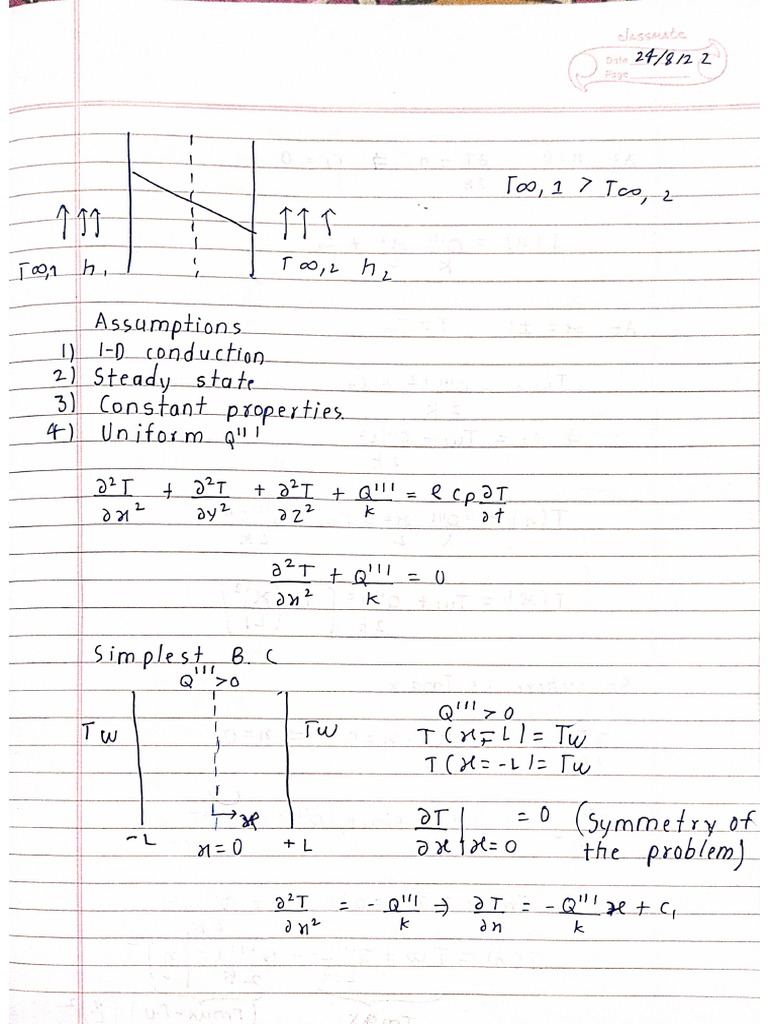 classmate
Date 24/8/22
Page
T∞,1 > T∞, 2
T∞,1 h1 T∞,2 h2
Assumptions
1) 1-D conduction
2) Steady state
3) Constant properties.
4) Uniform Q'''
∂²T/∂x² + ∂²T/∂y² + ∂²T/∂z² + Q'''/k = ρ cp ∂T/∂t
∂²T/∂x² + Q'''/k = 0
Simplest B. C
Q''' > 0
Tw Tw
-L x=0 +L
x
Q''' > 0
T(x=L) = Tw
T(x=-L) = Tw
∂T/∂x | x=0 = 0 (Symmetry of
the problem)
∂²T/∂x² = - Q'''/k ⇒ ∂T/∂x = - Q'''/k x + C1